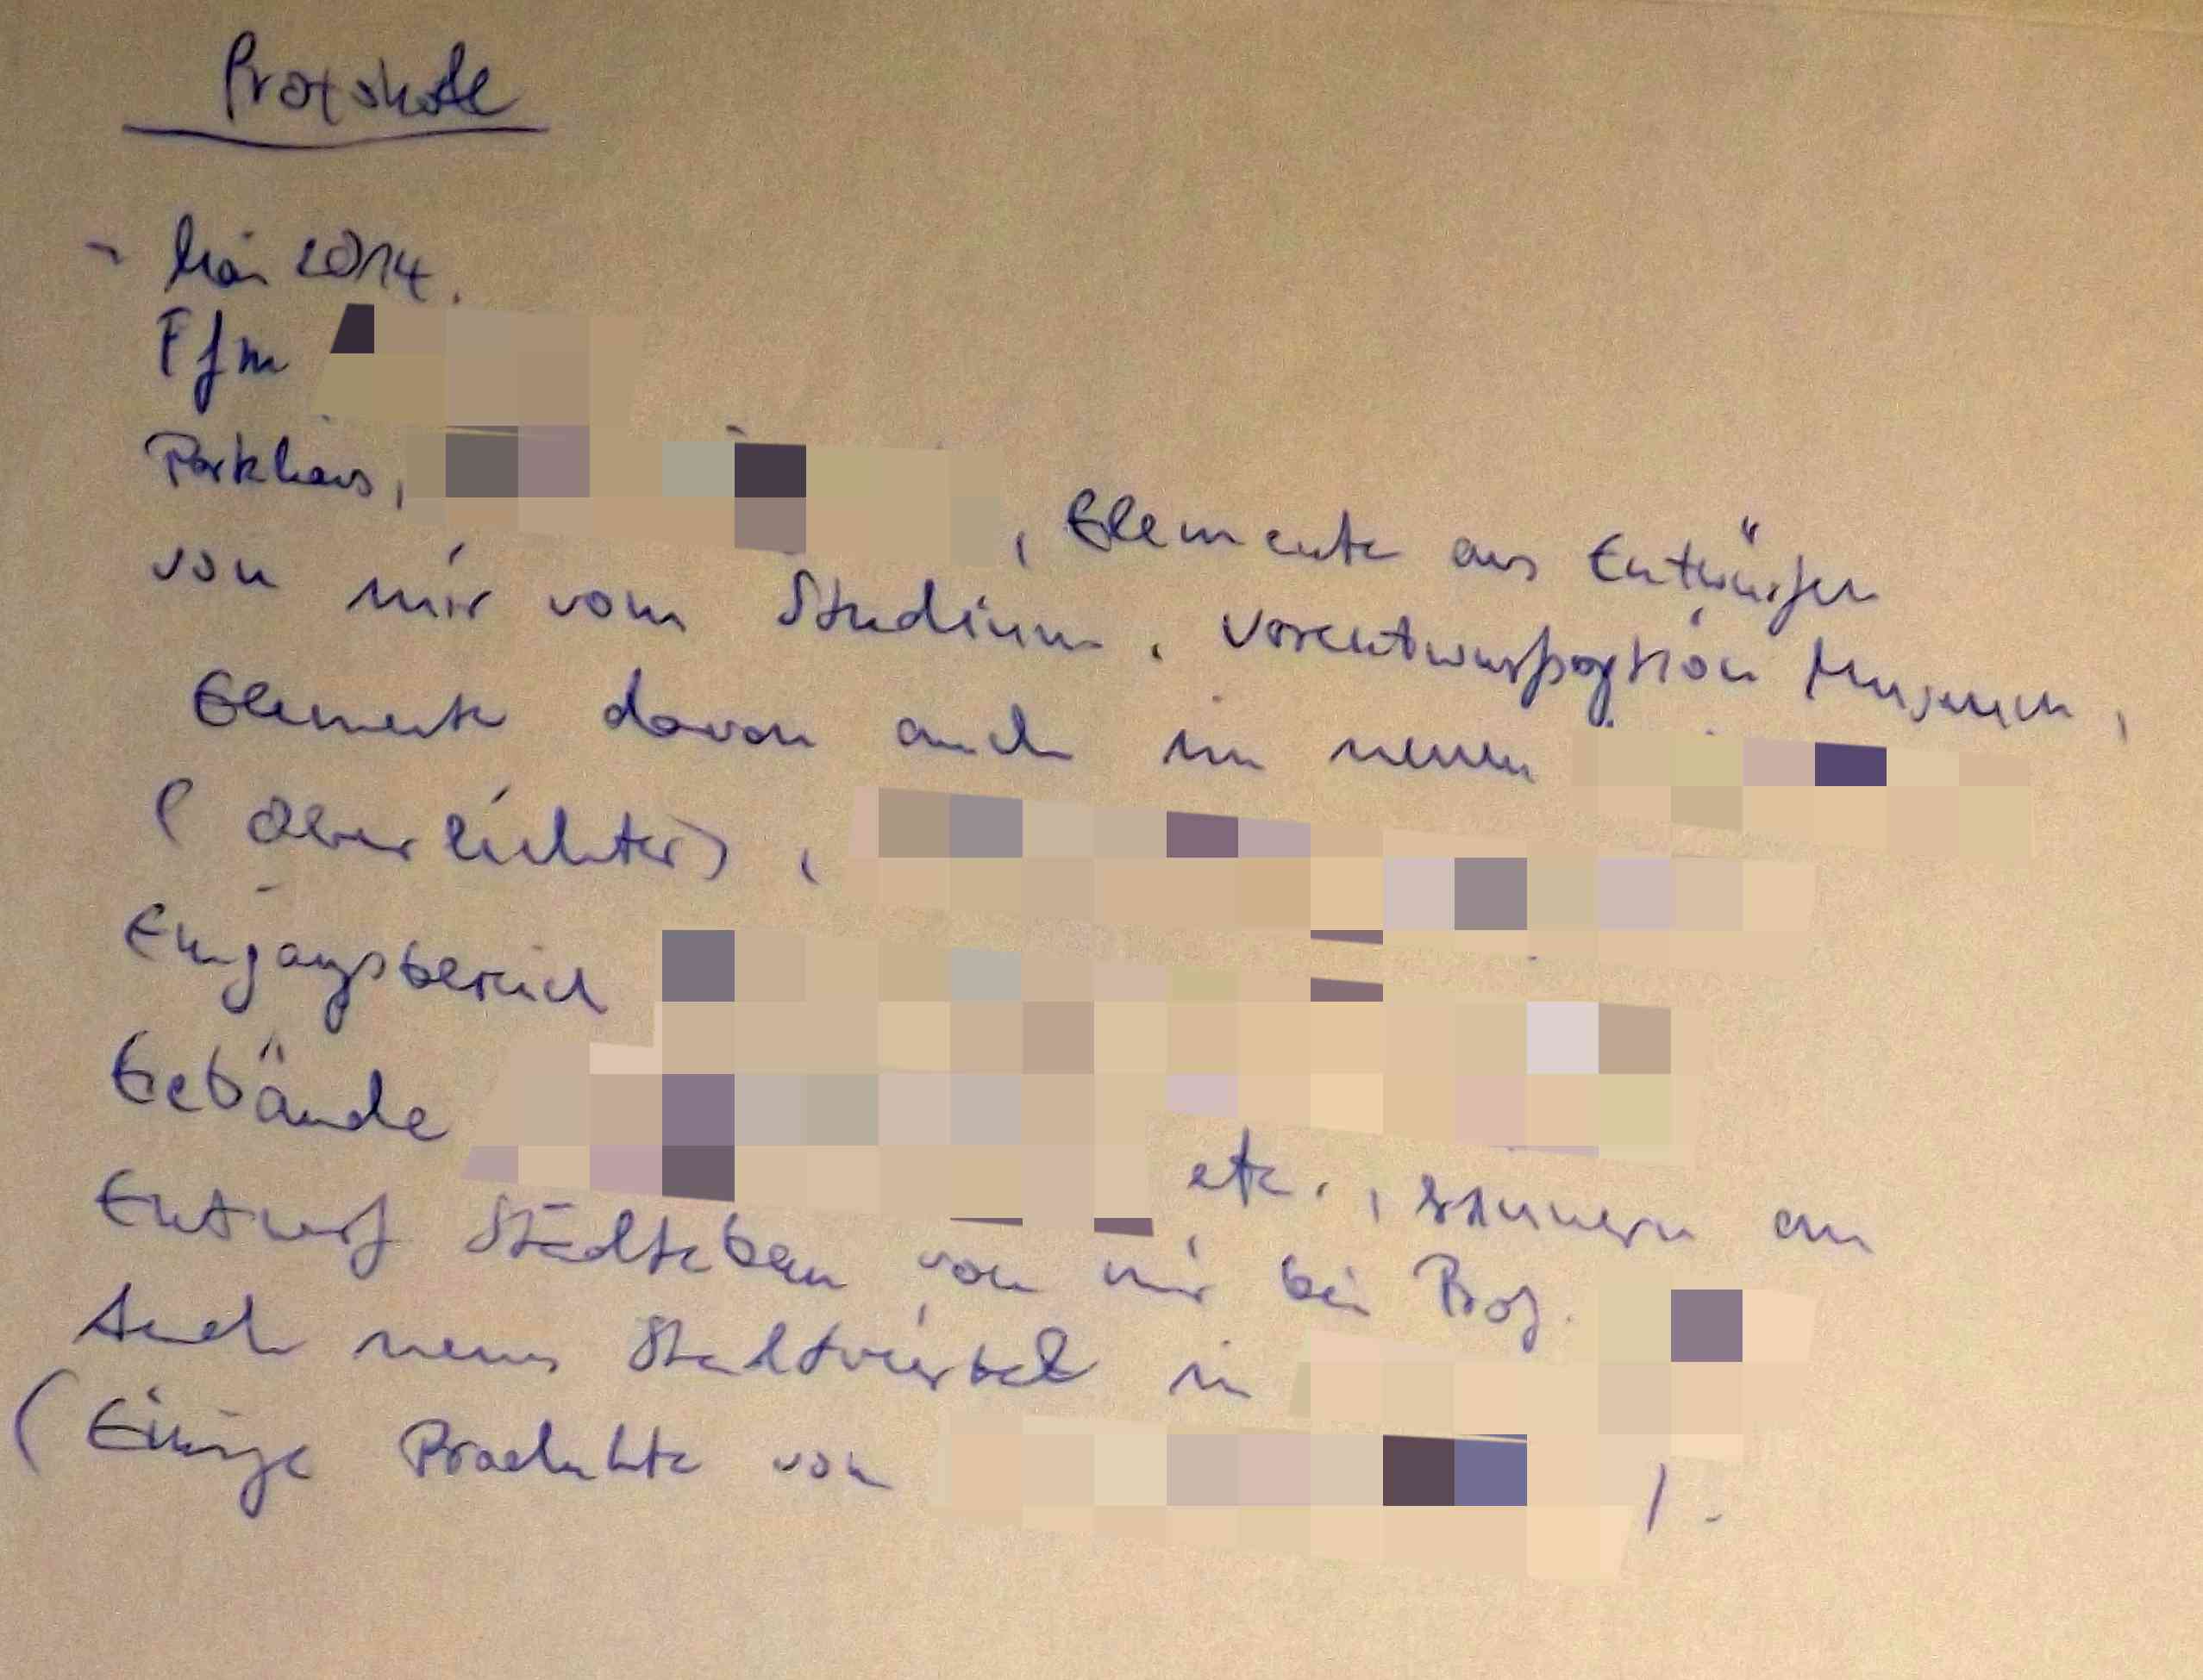 Protokolle
- Mai 2014.
Ffm
Parkhaus,
, Elemente aus Entwürfen
von mir vom Studium. Vorentwurfsoption Museum,
Elemente davon auch im neuen
(Oberlichter),
Eingangsbereich
Gebäude
etc., erinnern an
Entwurf Städtebau von mir bei Prof.
Auch neues Stadtviertel in
(Einige Produkte von
).